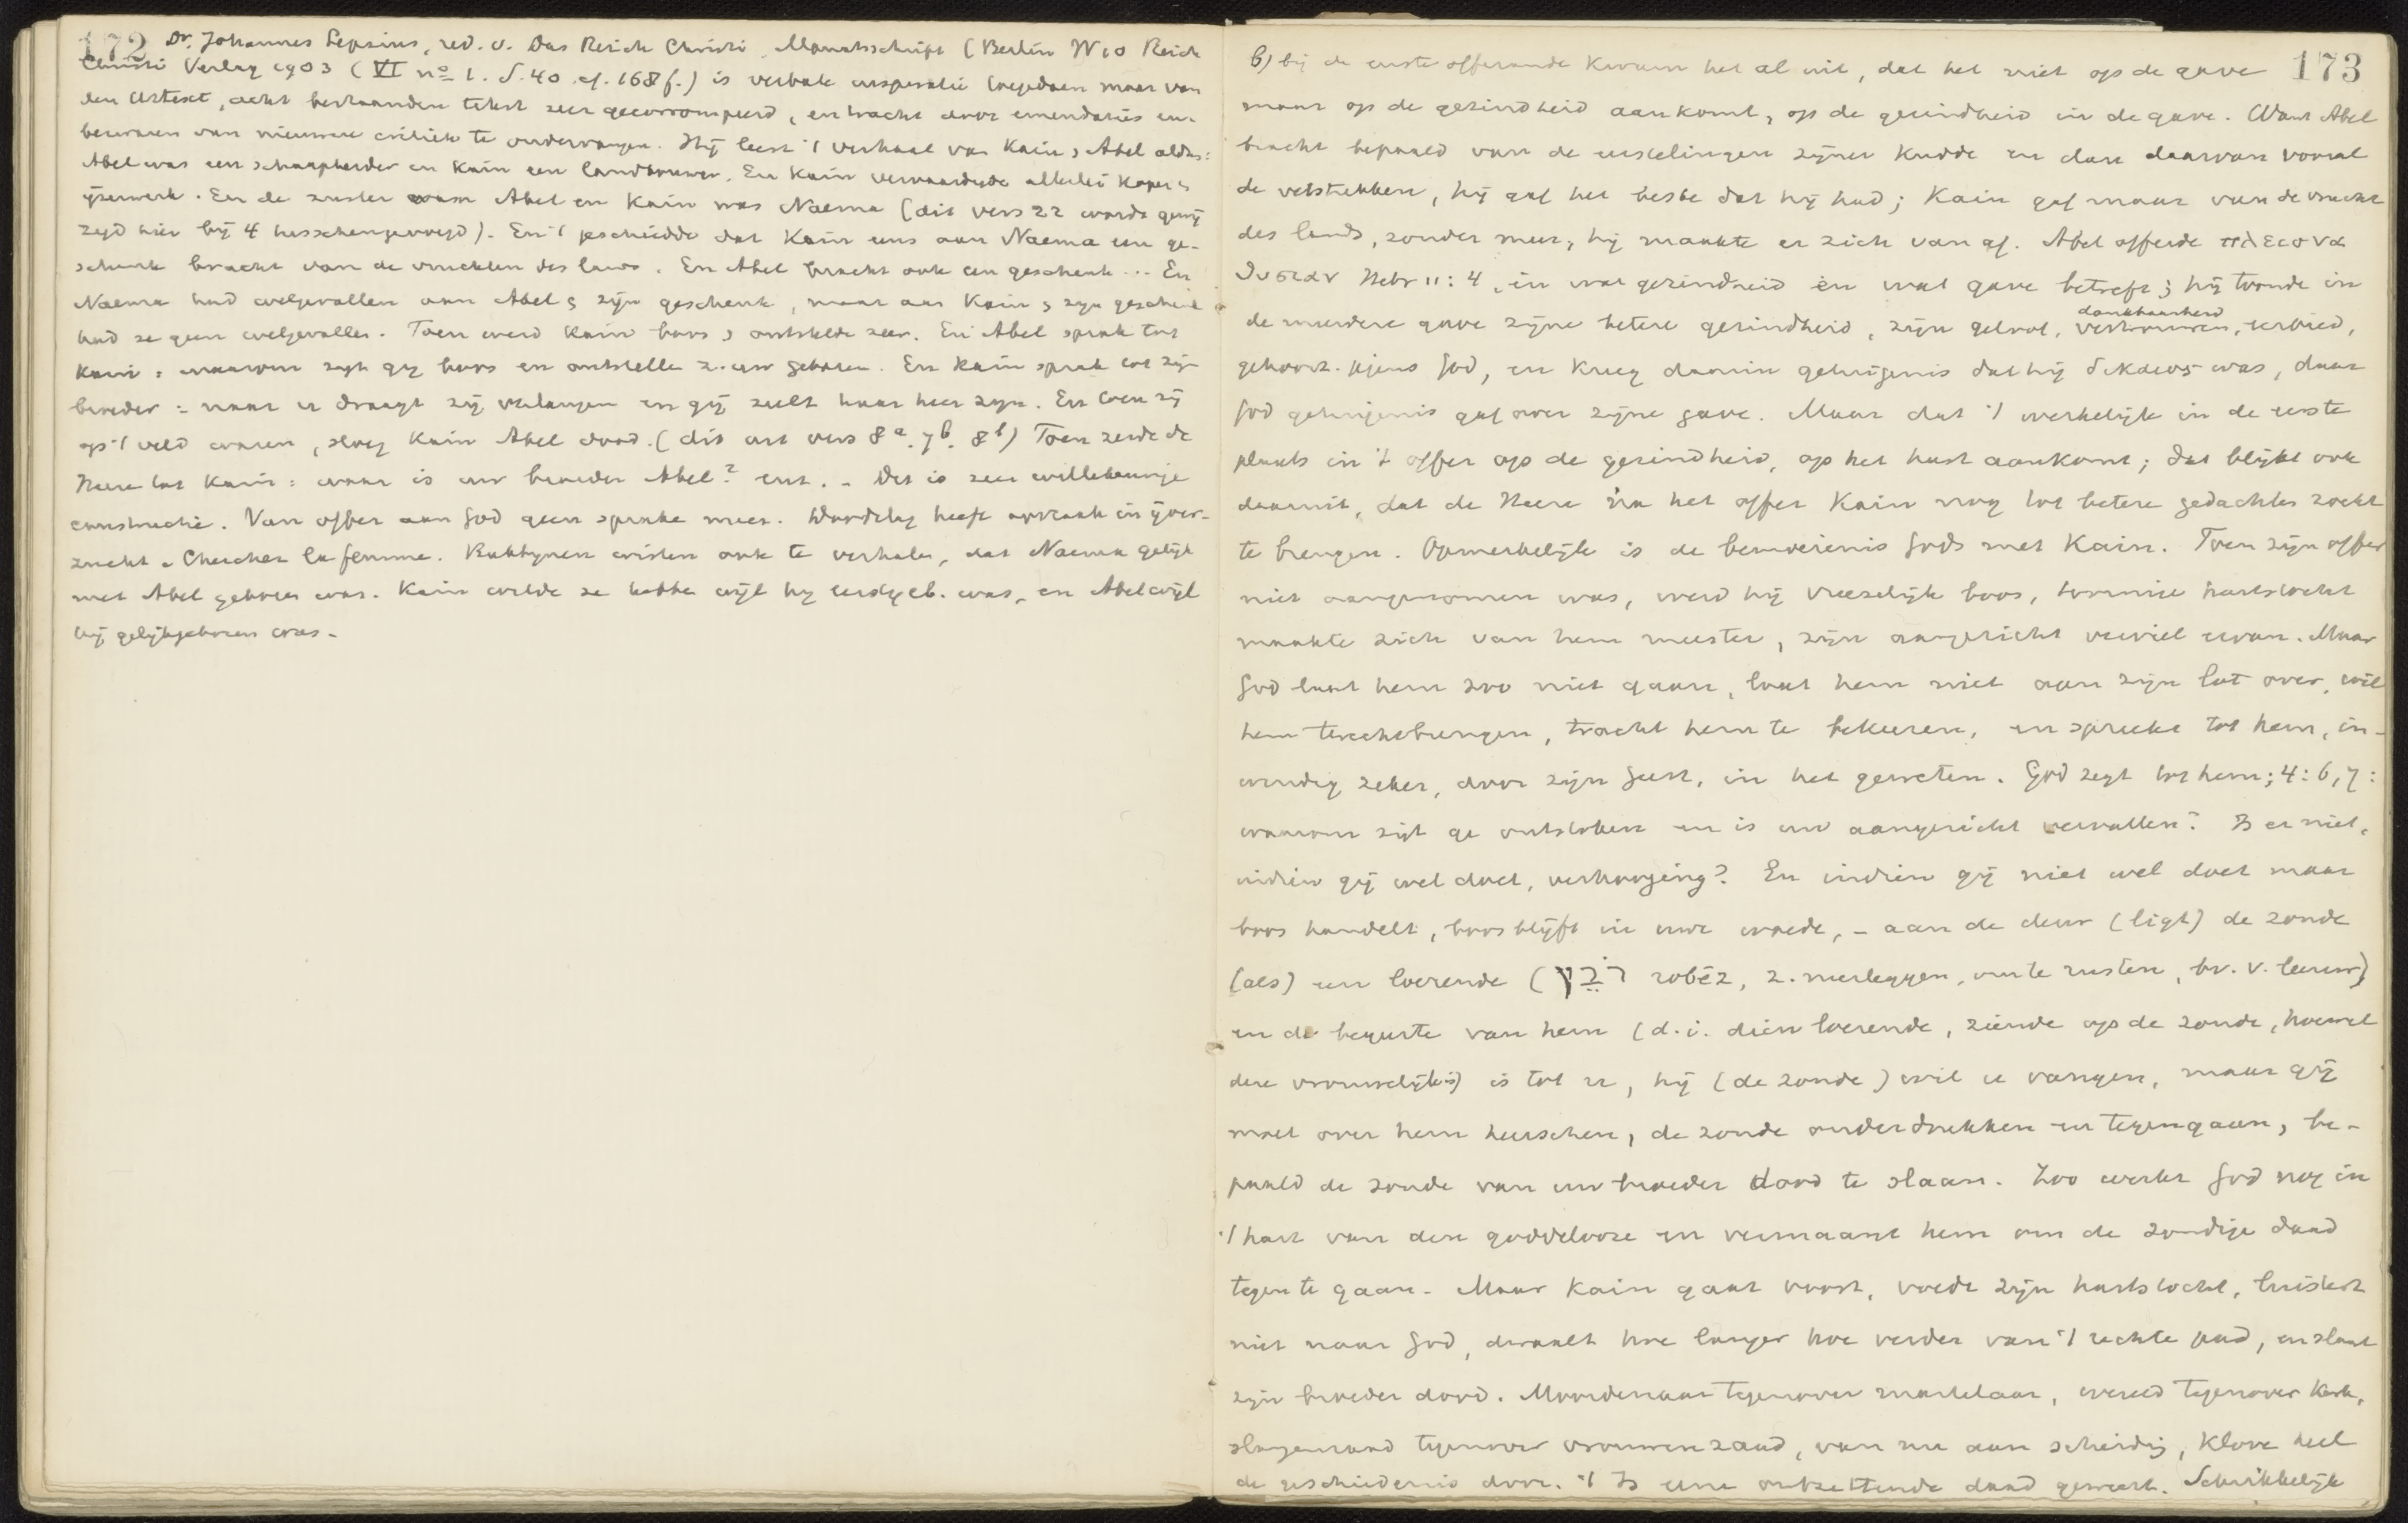 172 Dr. Johannes Lepsius, red. v. Das Reich Christi, Monatsschrift (Berlin W 10 Reich
Christi Verlag 1903 (VI no 1. S. 40. cf. 168 f.) is verbale inspiratie toegedaan maar van
den Urtext, acht bestaanden tekst zeer gecorrompeerd, en tracht door emendaties en
bezwaren van nieuwere critiek te ondervangen. Hij leest 't verhaal van Kain & Abel aldus:
Abel was een schaapherder en Kain een landbouwer. En Kain vervaardigde allerlei koper &
ijzerwerk. En de zuster van Abel en Kain was Naema (dit vers 22 wordt
hier bij 4 tusschengevoegd). En 't geschiedde dat Kain eens aan Naema een ge-
schenk bracht van de vruchten des lands. En Abel bracht ook een geschenk ... En
Naema had welgevallen aan Abel & zijn geschenk, maar aan Kain & zijn geschenk
had ze geen welgevallen. Toen werd Kain boos & ontstelde zeer. En Abel sprak tot
Kain: waarom zijt gij boos en ontstellen z. uw gebaren. En Kain sprak tot zijn
broeder: naar u draagt zij verlangen en gij zult haar heer zijn. En toen zij
op 't veld waren, sloeg Kain Abel dood. (dit uit vers 8a. 7b. 8b) Toen zeide de
Heere tot Kain: waar is uw broeder Abel? enz. - Dit is zeer willekeurige
constructie. Van offer aan God geen sprake meer. Doodslag heeft oorzaak in ijver-
zucht. Cherchez la femme. Rabbijnen wisten ook te verhalen, dat Naema gelijk
met Abel geboren was. Kain wilde ze hebben wijl hij eerstgeb. was, en Abel wijl
hij gelijkgeboren was.
173
b) bij de eerste offerande kwam het al uit, dat het niet op de gave
maar op de gezindheid aankomt, op de gezindheid in de gave. Want Abel
bracht bepaald van de eerstelingen zijner kudde en dan daarvan vooral
de vetstukken, hij gaf het beste dat hij had; Kain gaf maar van de vrucht
des lands, zonder meer, hij maakte er zich van af. Abel offerde πλειονα
θυσιαν Hebr 11:4, en wat gezindheid èn wat gave betreft; hij toonde in
de meerdere gave zijne betere gezindheid, zijn geloof, vertrouwen, dankbaarheid, eerbied,
gehoorz. jegens God, en kreeg daarin getuigenis dat hij δικαιος was, daar
God getuigenis gaf over zijne gave. Maar dat 't werkelijk in de eerste
plaats in 't offer op de gezindheid, op het hart aankomt; dat blijkt ook
daaruit, dat de Heere na het offer Kain nog tot betere gedachten zoekt
te brengen. Opmerkelijk is de bemoeienis Gods met Kain. Toen zijn offer
niet aangenomen was, werd hij vreeselijk boos, toornige hartstocht
maakte zich van hem meester, zijn aangezicht verviel ervan. Maar
God laat hem zoo niet gaan, laat hem niet aan zijn lot over, wil
hem terechtbrengen, tracht hem te bekeeren, en spreekt tot hem, in-
wendig zeker, door zijn Geest, in het geweten. God zegt tot hem; 4:6,7:
waarom zijt ge ontstoken en is uw aangezicht vervallen? Is er niet,
indien gij wel doet, verhooging? En indien gij niet wel doet maar
boos handelt, boos blijft in uwe woede, - aan de deur (ligt) de zonde
(als) een loerende (רֹבֵץ robēz, z. neerleggen, om te rusten, bv. v. leeuw)
en de begeerte van hem (d.i. dien loerende, ziende op de zonde, hoewel
deze vrouwelijk is) is tot u, hij (de zonde) wil u vangen, maar gij
moet over hem heerschen, de zonde onderdrukken en tegengaan, be-
paald de zonde van uw broeder dood te slaan. Zoo werkt God nog in
't hart van den goddelooze en vermaant hem om de zondige daad
tegen te gaan. Maar Kain gaat voort, voedt zijn hartstocht, luistert
niet naar God, dwaalt hoe langer hoe verder van 't rechte pad, en slaat
zijn broeder dood. Moordenaar tegenover martelaar, wereld tegenover Kerk,
slangenzaad tegenover vrouwenzaad, van nu aan scheiding, klove heel
de geschiedenis door. 't Is eene ontzettende daad geweest. Schrikkelijk